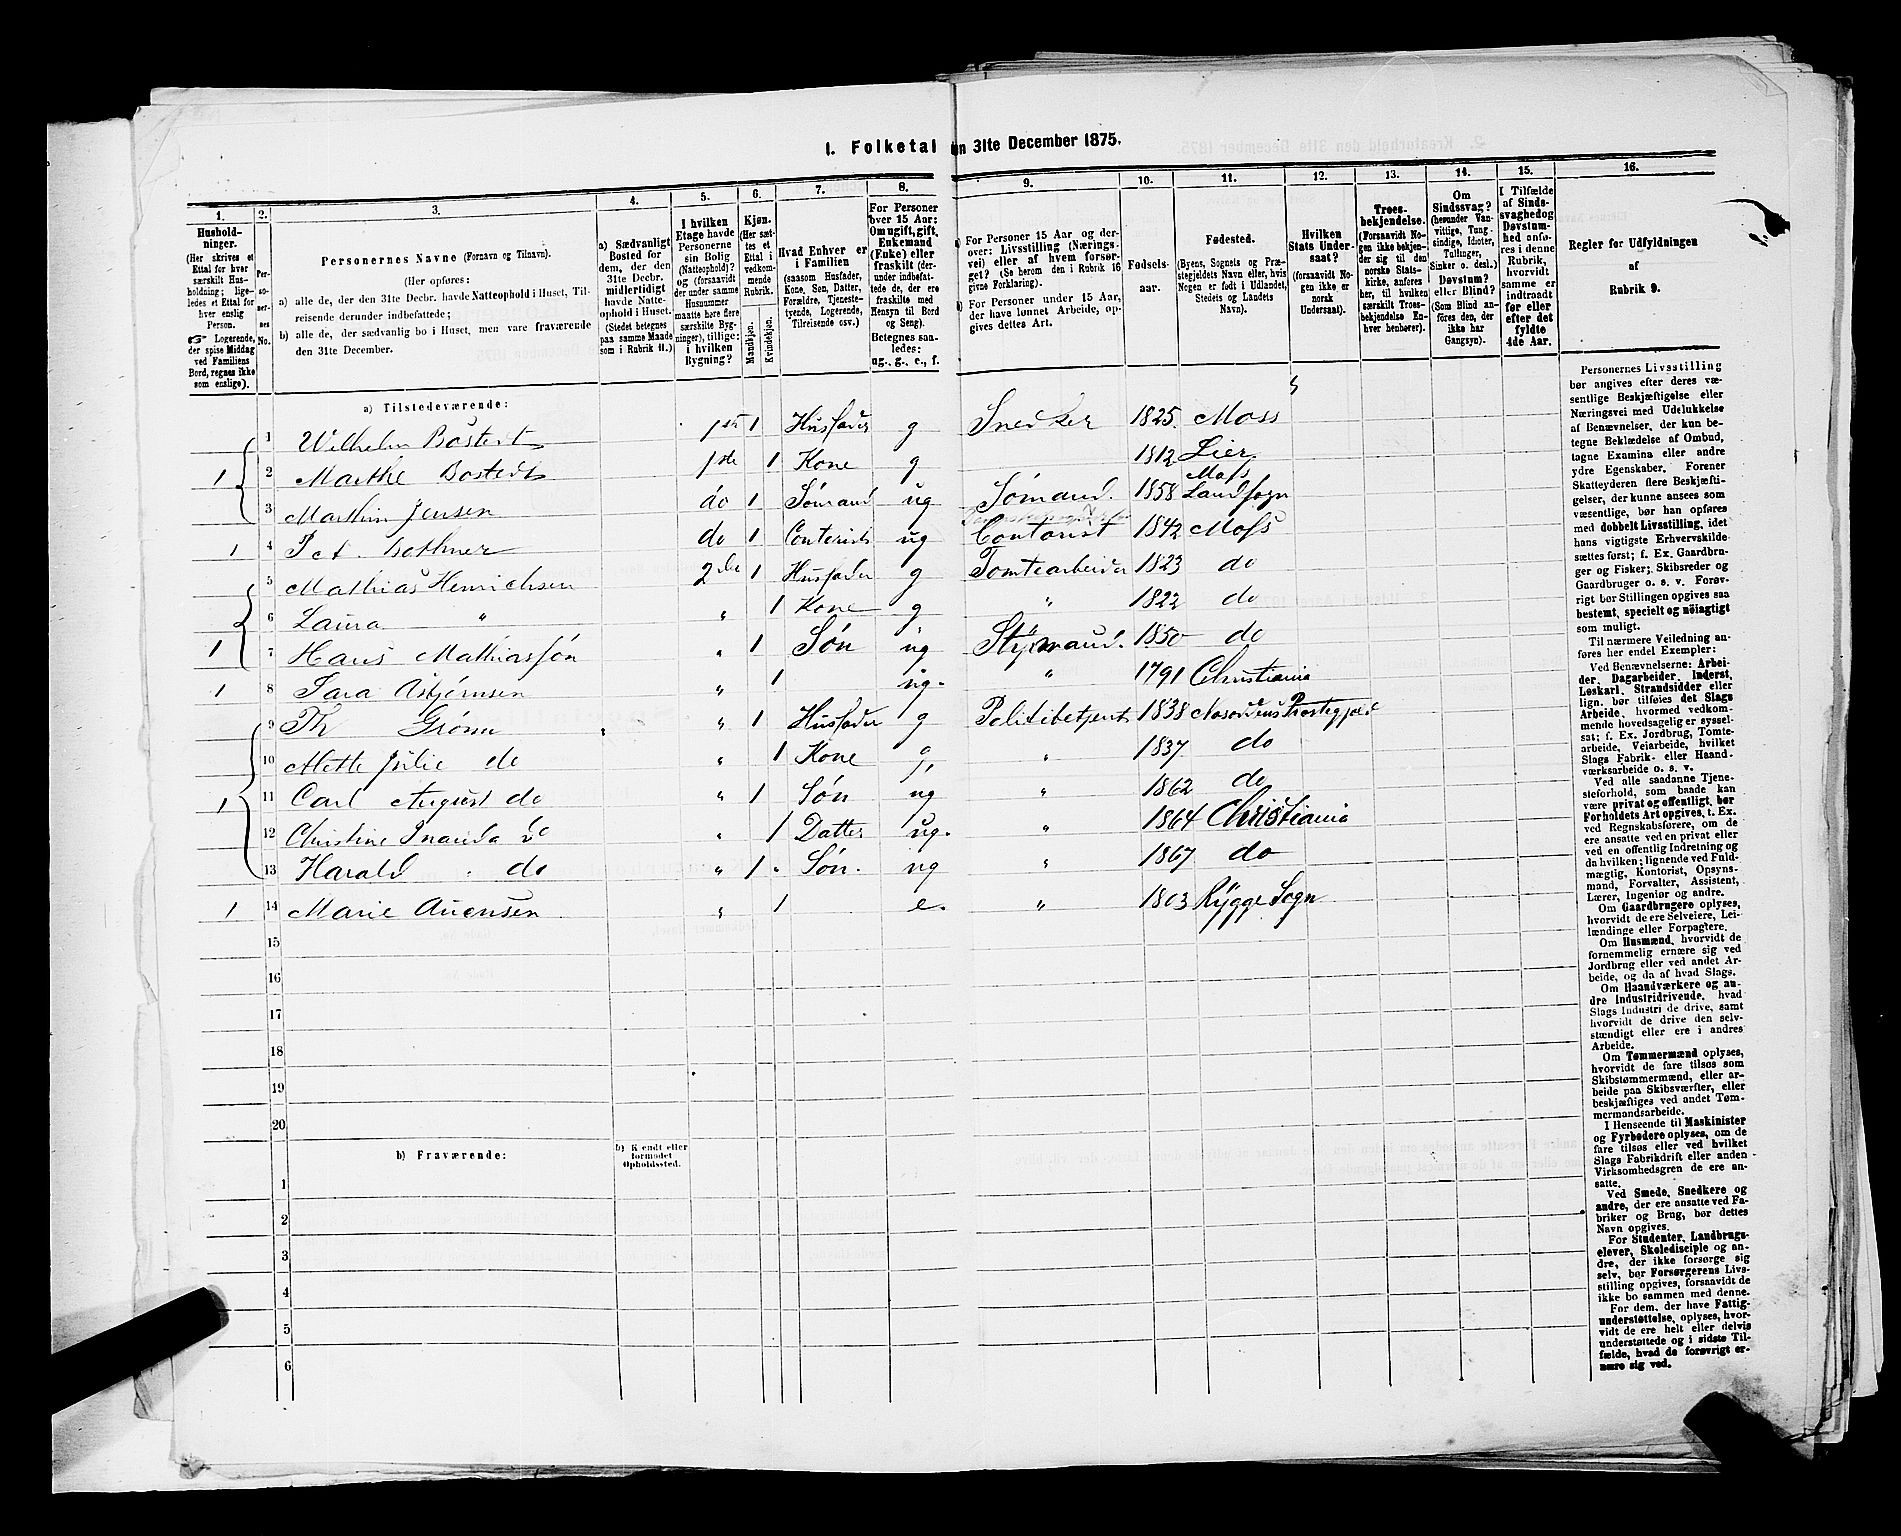 I. Folketal
n 31te December 1875.
1. 2. 3. 4. 5. 6. 7. 8. 9. 10. 11. 12. 13. 14. 15. 16.
Hushold-
ninger.
(Her skrives et
Ettal for hver
særskilt Hus-
holdning; lige-
ledes et Ettal for
hver enslig
Person.
☞ Logerende,
der spise Middag
ved Familiens
Bord, regnes ikke
som enslige).
Per-
so-
ner-
nes
No.
Personernes Navne (Fornavn og Tilnavn).
(Her opføres:
a) alle de, der den 31te Decbr. havde Natteophold i Huset, Til-
reisende derunder indbefattede;
b) alle de, der sædvanlig bo i Huset, men vare fraværende
den 31te December.
a) Sædvanligt
Bosted for
dem, der den
31te Decbr.
midlertidigt
havde Natte-
ophold i Huset.
(Stedet betegnes
paa samme Maade
som i Rubrik 11.)
I hvilken
Etage havde
Personerne
sin Bolig
(Natteophold)?
og (forsaavidt
der under samme
Husnummer
maatte høre flere
særskilte Byg-
ninger), tillige:
i hvilken
Bygning?
Kjøn.
(Her sæt-
tes et
Ettal i
vedkom-
mende
Rubrik.
Mandkjøn.
Kvindekjøn.
Hvad Enhver er
i Familien
(saasom Husfader,
Kone, Søn, Datter,
Forældre, Tjeneste-
tyende, Logerende,
Tilreisende osv.)
For Personer
over 15 Aar:
Om ugift, gift,
Enkemand
(Enke) eller
fraskilt (der-
under indbefat-
tede de, der ere
fraskilte med
Hensyn til Bord
og Seng).
Betegnes saa-
ledes:
ug., g., e., f.
a) For Personer 15 Aar og der-
over: Livsstilling (Nærings-
vei) eller af hvem forsør-
get? (Se herom den i Rubrik 16
givne Forklaring).
b) For Personer under 15 Aar,
der have lønnet Arbeide, op-
gives dettes Art.
Fødsels-
aar.
Fødested.
(Byens, Sognets og Præ-
stegjeldets Navn eller, hvis
Nogen er født i Udlandet,
Stedets og Landets
Navn).
Hvilken
Stats Under-
saat?
(forsaavidt No-
gen ikke er
norsk
Undersaat).
Troes-
bekjendelse.
(Forsaavidt No-
gen ikke bekjen-
der sig til den
norske Stats-
kirke, anføres
her, til hvilken
særskilt Troes-
bekjendelse En-
hver henhører).
Om
Sindssvag?
(herunder Van-
vittige, Tung-
sindige, Idioter,
Tullinger,
Sinker o. desl.)
Døvstum?
eller Blind?
(Som Blind an-
føres den, der
ikke har
Gangsyn).
I Tilfælde
af Sinds-
svaghed og
Døvstum-
hed anfø-
res i denne
Rubrik,
hvorvidt
samme er
indtraadt
før eller
efter det
fyldte
4de Aar.
Regler for Udfyldningen
af
Rubrik 9.
a) Tilstedeværende:
1 1 Wilhelm Bostedt 1ste 1 Husfader g Snedker 1825. Moss
2 Marthe Bostedt 1ste 1 Kone g 1812 Lier
3 Marthin Jensen do 1 Sømand ug Sømand. 1858 Moss Landsogn
1 4 Pet. Bothner do 1 Contorist ug Contorist 1842 Moss
1 5 Mathias Henrichsen 2den 1 Husfader g Tomtearbeider 1823 do
6 Laura " " 1 Kone g " 1822 do
7 Hans Mathiassøn " 1 Søn ug Styrmand. 1850 do
1 8 Sara Asbjørnsen " 1 ug. " 1791 Christiania
1 9 Th Grønn " 1 Husfader g Politibetjent 1838 Prestegjeld
10 Mette Julie do " 1 Kone g, " 1837 do
11 Carl August do " 1 Søn ug " 1862 do
12 Christine do " 1 Datter ug. " 1864 Christiania
13 Harald do " 1 Søn. ug " 1867 do
1 14 Marie " 1 e. " 1803 Rygge Sogn
15
16
17
18
19
20
b) Fraværende:
b) Kjendt eller
formodet
Opholdssted.
1
2
3
4
5
6
Personernes Livsstilling
bør angives efter deres væ-
sentlige Beskjæftigelse eller
Næringsvei med Udelukkelse
af Benævnelser, der kun be-
tegne Beklædelse af Ombud,
tagne Examina eller andre
ydre Egenskaber. Forener
Skatteyderen flere Beskjæfti-
gelser, der kunne ansees som
væsentlige, bør han opføres
med dobbelt Livsstilling, idet
hans vigtigste Erhvervskilde
sættes først; f. Ex. Gaardbru-
ger og Fisker; Skibsreder og
Gaardbruger o. s. v. Forøv-
rigt bør Stillingen opgives saa
bestemt, specielt og nöiagtigt
som muligt.
Til nærmere Veiledning an-
føres her endel Exempler:
Ved Benævnelserne: Arbei-
der, Dagarbeider, Inderst,
Løskarl, Strandsidder eller
lign. bør tilføies det Slags
Arbeide, hvormed vedkom-
mende hovedsagelig er syssel-
sat; f. Ex. Jordbrug, Tomte-
arbeide, Veiarbeide, hvilket
Slags Fabrik- eller Haand-
værksarbeide o. s. v.
Ved alle saadanne Tjene-
steforhold, som baade kan
være privat og offentligt, bør
Forholdets Art opgives, t. Ex.
ved Regnskabsførere, om de
ere ansatte ved en privat eller
ved en offentlig Indretning og
da hvilken; lignende ved Fuld-
mægtig, Kontorist, Opsyns-
mand, Forvalter, Assistent,
Lærer, Ingeniør og andre.
Om Gaardbrugere oplyses,
hvorvidt de ere Selveiere, Lei-
lændinge eller Forpagtere.
Om Husmænd, hvorvidt de
fornemmelig ernære sig ved
Jordbrug eller ved andet Ar-
beide, og da af hvad Slags.
Om Haandværkere og an-
dre Industridrivende, hvad
Slags Industri de drive, samt
hvorvidt de drive den selv-
stændigt eller ere i andres
Arbeide.
Om Tømmermænd oplyses,
hvorvidt de fare tilsøs som
Skibstømmermænd, eller ar-
beide paa Skibsværfter, eller
beskjæftiges ved andet Tøm-
mermandsarbeide.
I Henseende til Maskinister
og Fyrbødere oplyses, om de
fare tilsøs eller ved hvilket
Slags Fabrikdrift eller anden
Virksomhedsgren de ere an-
satte.
Ved Smede, Snedkere og
andre, der ere ansatte ved Fa-
briker og Brug, bør dettes
Navn opgives.
For Studenter, Landbrugs-
elever, Skoledisciple og an-
dre, der ikke forsørge sig
selv, bør Forsørgerens Livs-
stilling opgives, forsaavidt de
ikke bo sammen med denne.
For dem, der have Fattig-
understøttelse, oplyses, hvor-
vidt de ere helt eller delvis
understøttede og i sidste Til-
fælde, hvad de forøvrigt er-
nære sig ved.